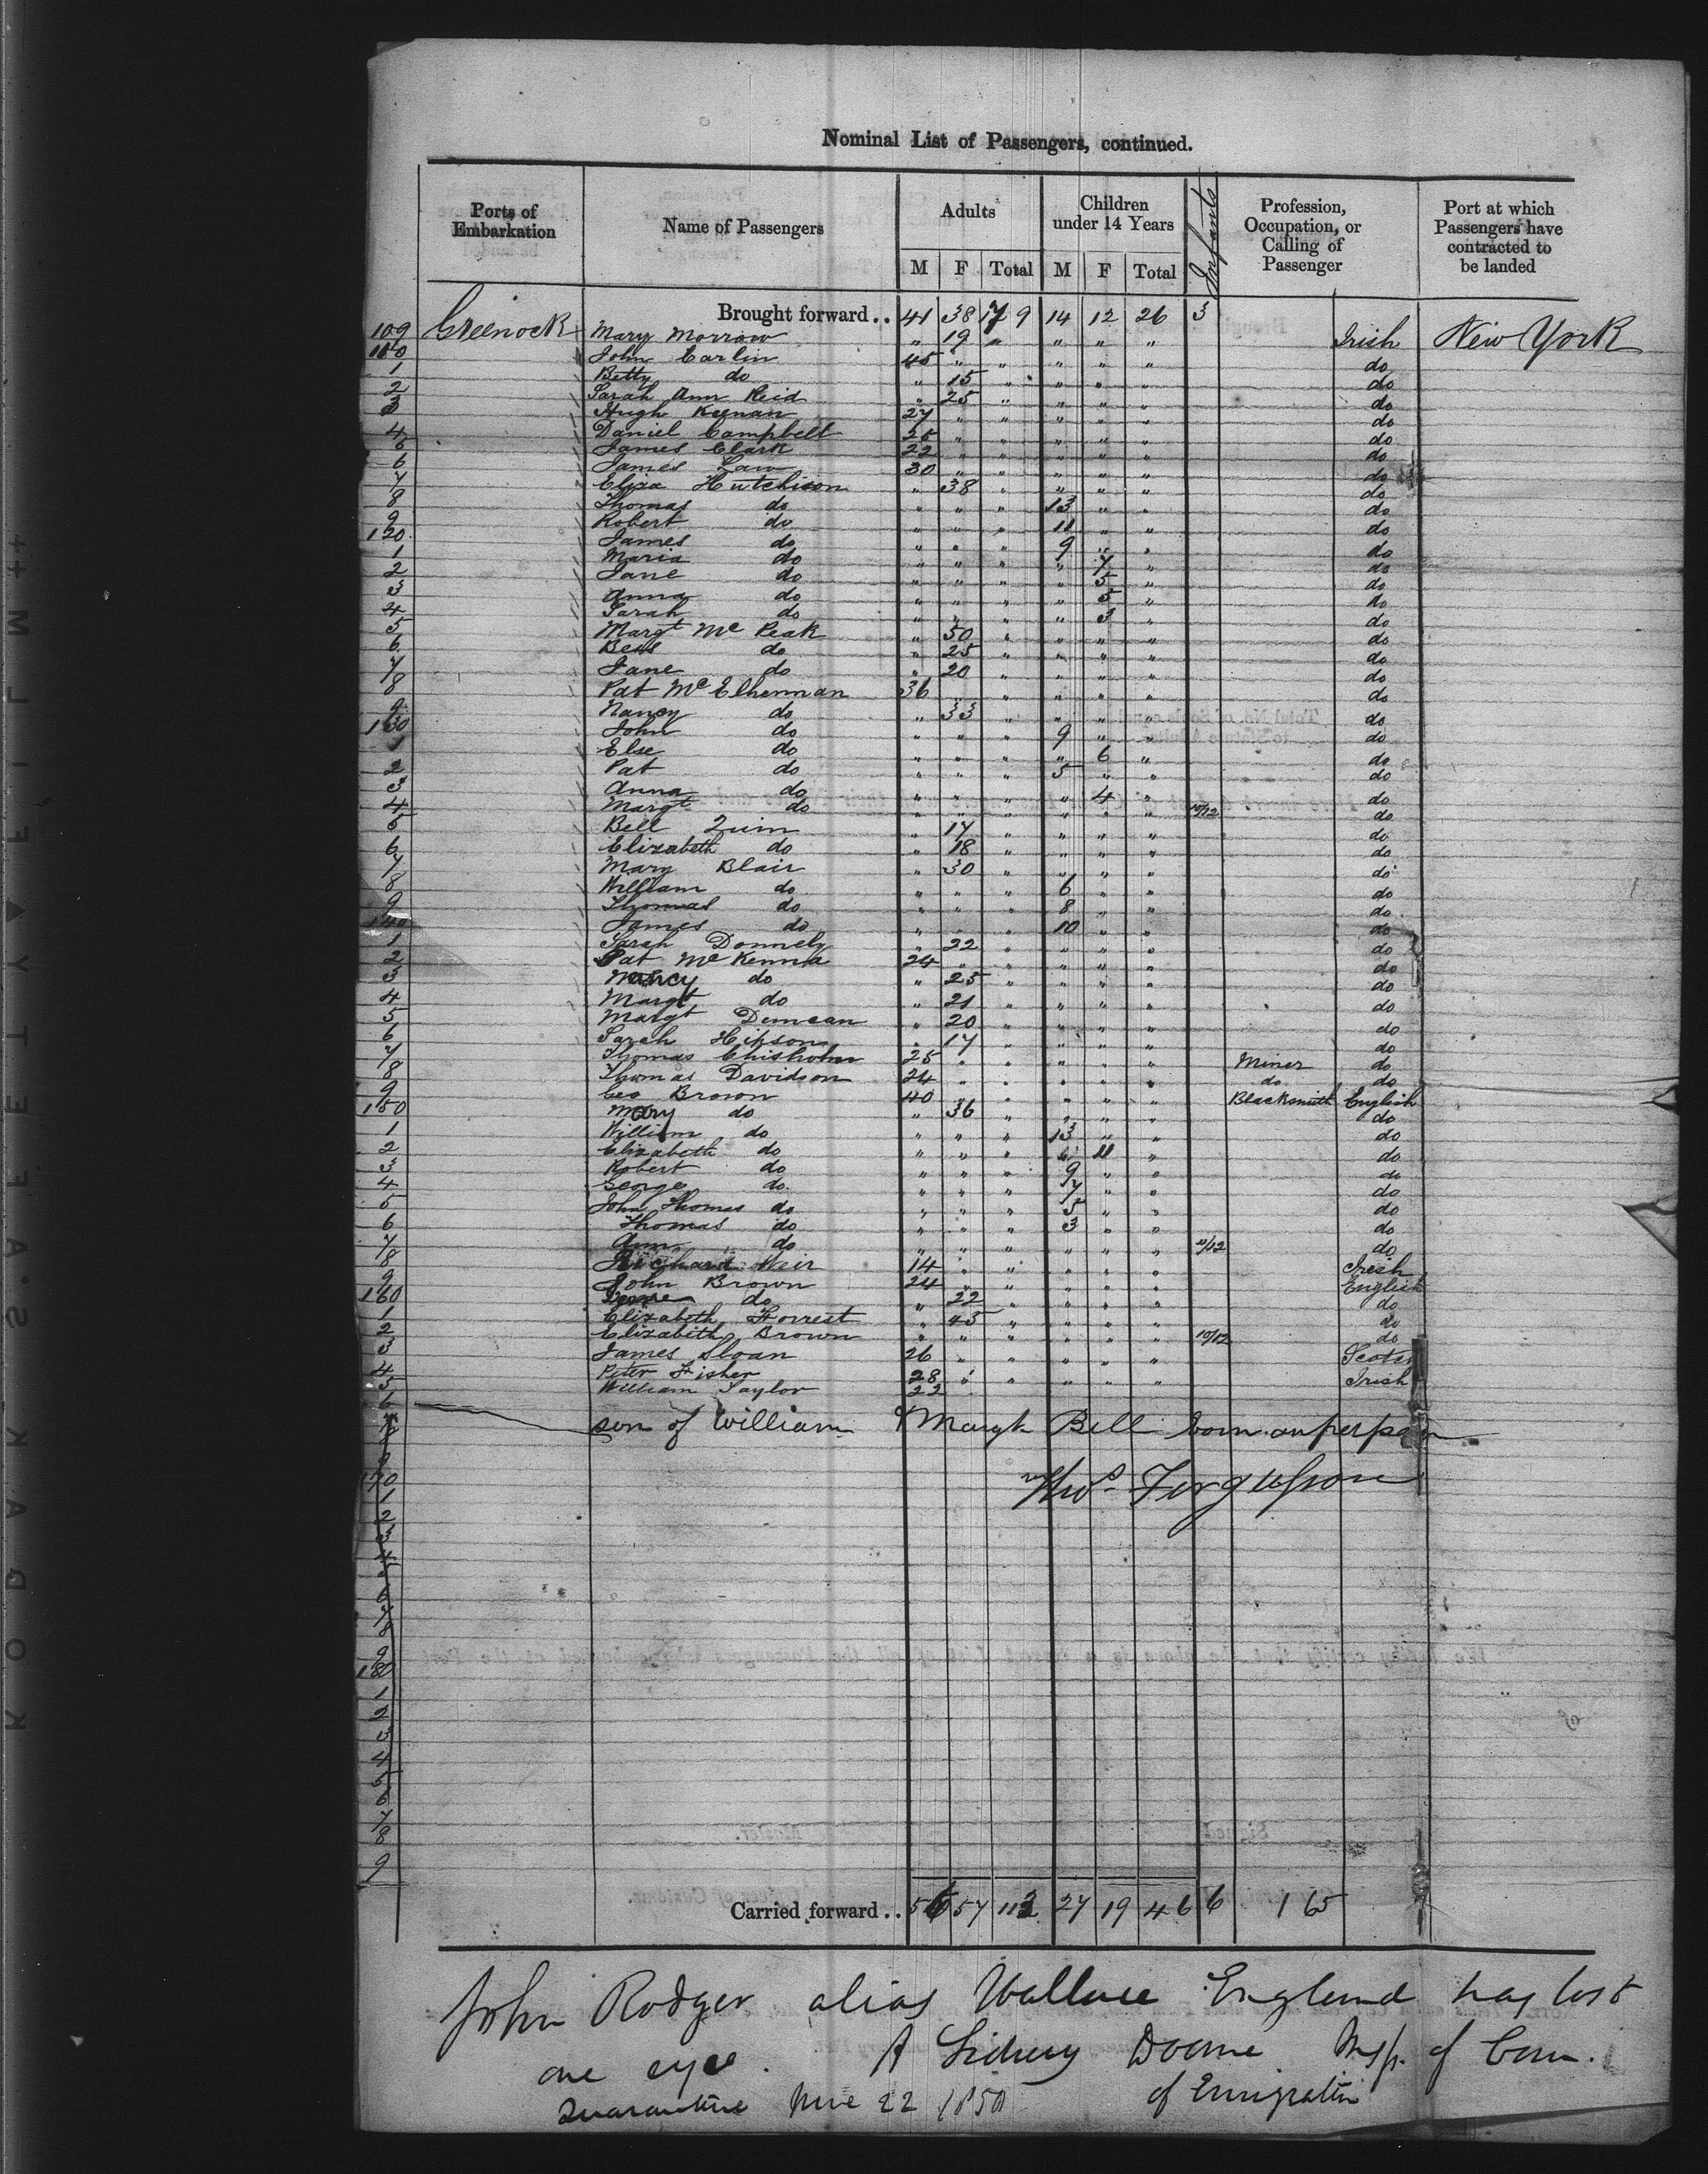 Nominal List of Passengers, continued.
Ports of Embarkation | Name of Passengers | Adults M F Total | Children under 14 Years M F Total | Infants | Profession, Occupation, or Calling of Passenger | Port at which Passengers have contracted to be landed
Brought forward.. 41 38 79 14 12 26 3
109 Greenock Mary Morrow " 19 " " " " Irish New York
110 John Carlin 45 " " " " " do
1 Betty do " 15 " " " " do
2 Sarah Ann Reid " 25 " " " " do
3 Hugh Keenan 27 " " " " " do
4 Daniel Campbell 25 " " " " " do
5 James Clark 22 " " " " " do
6 James Law 30 " " " " " do
7 Eliza Hutchison " 38 " " " " do
8 Thomas do " " " 13 " " do
9 Robert do " " " 11 " " do
120 James do " " " 9 " " do
1 Maria do " " " " 7 " do
2 Jane do " " " " 5 " do
3 Anna do " " " " 5 " do
4 Sarah do " " " " 3 " do
5 Margt Mc Peak " 50 " " " " do
6 Bell do " 25 " " " " do
7 Jane do " 20 " " " " do
8 Pat McElhennan 36 " " " " " do
9 Nancy do " 33 " " " " do
130 John do " " " 9 " " do
1 Else do " " " " 6 " do
2 Pat do " " " 5 " " do
3 Anna do " " " " 4 " do
4 Margt do " " " " " " 10/12 do
5 Bell Quin " 17 " " " " do
6 Elizabeth do " 18 " " " " do
7 Mary Blair " 30 " " " " do
8 William do " " " 6 " " do
9 Thomas do " " " 8 " " do
140 James do " " " 10 " " do
1 Sarah Donnely " 22 " " " " do
2 Pat McKenna 24 " " " " " do
3 Nancy do " 25 " " " " do
4 Margt do " 21 " " " " do
5 Margt Duncan " 20 " " " " do
6 Sarah Hipson " 17 " " " " do
7 Thomas Chisholm 25 " " " " " Miner do
8 Thomas Davidson 24 " " " " " do do
9 Geo Brown 40 " " " " " Blacksmith English
150 Mary do " 36 " " " " do
1 William do " " " 13 " " do
2 Elizabeth do " " " " 11 " do
3 Robert do " " " 9 " " do
4 George do " " " 7 " " do
5 John Thomas do " " " 5 " " do
6 Thomas do " " " 3 " " do
7 Ann do " " " " " " /12 do
8 Richard Weir 14 " " " " " Irish
9 John Brown 24 " " " " " English
160 do " 22 " " " " do
1 Elizabeth Forrest " 45 " " " " do
2 Elizabeth Brown " " " " " " 10/12 do
3 James Sloan 26 " " " " " Scotch
4 Peter Fisher 28 " " " " " Irish
5 William Taylor 22
6
7 son of William & Margt Bell born on
8
9
170 Thos Fergusson
1
2
3
4
5
6
7
8
9
180
1
2
3
4
5
6
7
8
9
Carried forward.. 56 57 113 27 19 46 6 165
John Rodger alias Wallace England has lost
one eye. A Sidney Doane Insp. of Com.
Quarantine June 22 1850 of Emigration